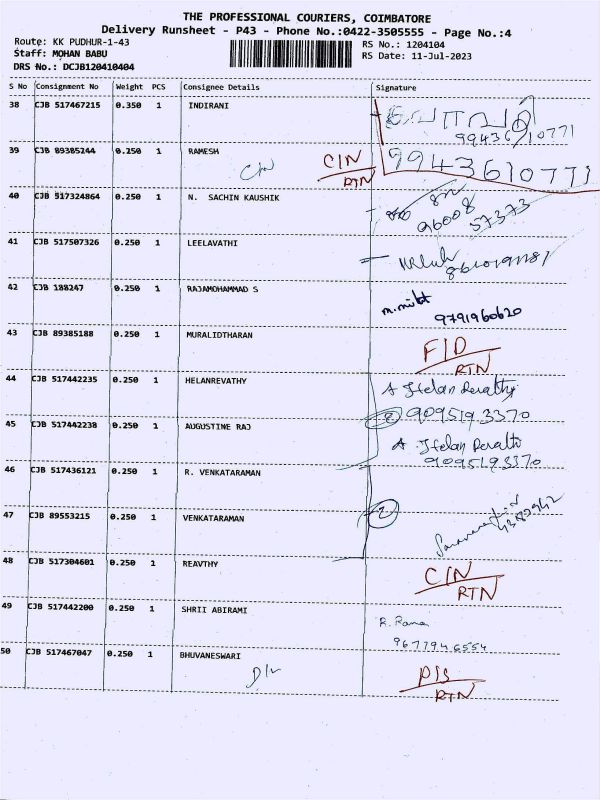 THE PROFESSIONAL COURIERS, COIMBATORE
Delivery Runsheet - P43 - Phone No.:0422-3505555 - Page No.:4
Route: KK PUDHUR-1-43 RS No.: 1204104
Staff: MOHAN BABU RS Date: 11-Jul-2023
DRS No.: DCJB120410404
S No Consignment No Weight PCS Consignee Details Signature
38 CJB 517467215 0.350 1 INDIRANI
9943610771
39 CJB 89385244 0.250 1 RAMESH C/N 9943610771
C/N RTN
40 CJB 517324864 0.250 1 N. SACHIN KAUSHIK
96008 57373
41 CJB 517507326 0.250 1 LEELAVATHI
42 CJB 188247 0.250 1 RAJAMOHAMMAD S
9791960620
43 CJB 89385188 0.250 1 MURALIDTHARAN F/D
RTN
44 CJB 517442235 0.250 1 HELANREVATHY
2 9095193370
45 CJB 517442238 0.250 1 AUGUSTINE RAJ
9095193370
46 CJB 517436121 0.250 1 R. VENKATARAMAN
47 CJB 89553215 0.250 1 VENKATARAMAN 2
48 CJB 517304601 0.250 1 REAVTHY C/N
RTN
49 CJB 517442200 0.250 1 SHRII ABIRAMI R. Rama
9677946554
50 CJB 517467047 0.250 1 BHUVANESWARI
RTN